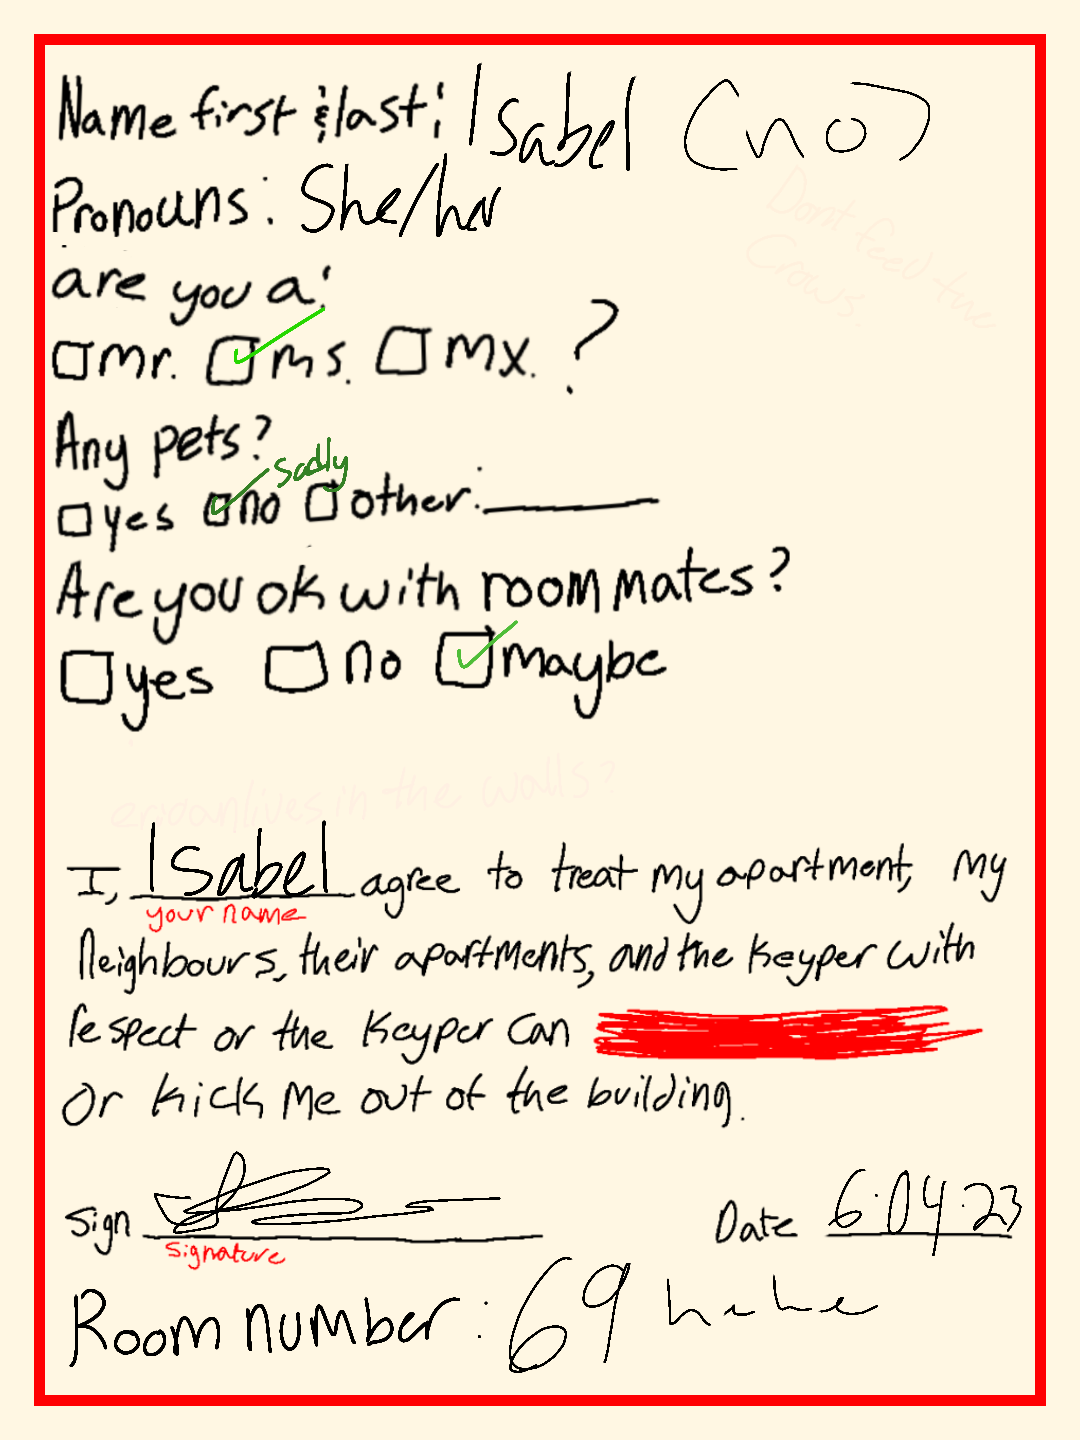 Name first & last: Isabel (no)
Pronouns: She/her
Dont feed the
Crows.
are you a:
mr. ms. mx. ?
Any pets?
sadly
yes no other:
Are you ok with roommates?
yes no maybe
lives in the walls?
I, Isabel agree to treat my apartment, my
your name
Neighbours, their apartments, and the Keyper with
respect or the Keyper can
Or kick me out of the building.
Sign Date 6.04.23
signature
Room number: 69 hehe